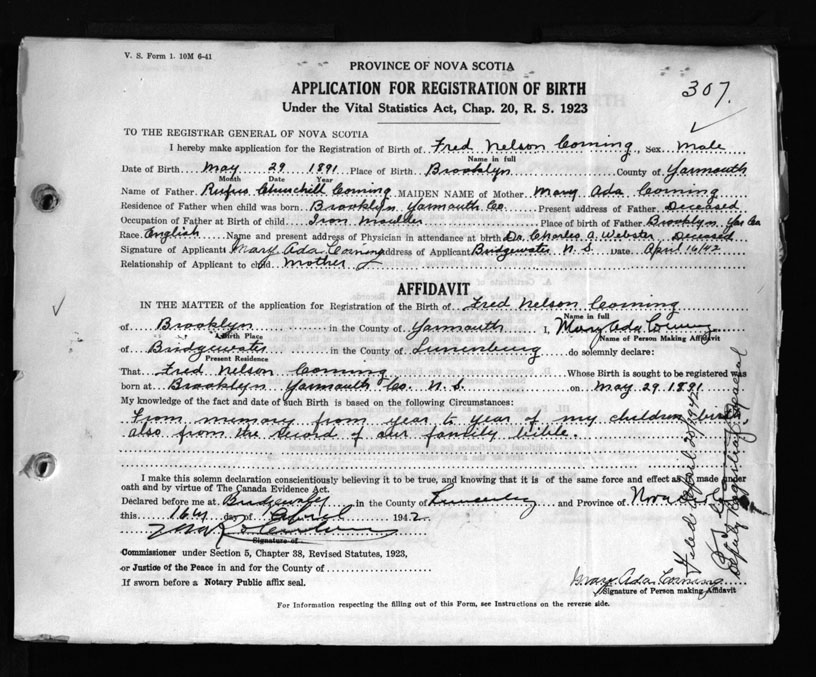 V. S. Form 1. 10M 6-41
PROVINCE OF NOVA SCOTIA
307.
APPLICATION FOR REGISTRATION OF BIRTH
Under the Vital Statistics Act, Chap. 20, R. S. 1923
TO THE REGISTRAR GENERAL OF NOVA SCOTIA
I hereby make application for the Registration of Birth of Fred Nelson Corning, Sex Male
Name in full
Date of Birth May 29 1891 Place of Birth Brooklyn County of Yarmouth
Month Date Year
Name of Father Rufus Churchill Corning MAIDEN NAME of Mother Mary Ada Corning
Residence of Father when child was born Brooklyn Yarmouth Co. Present address of Father Deceased
Occupation of Father at Birth of child Iron Moulder Place of birth of Father Brooklyn Yar Co
Race English Name and present address of Physician in attendance at birth Dr. Charles A. Webster, Deceased
Signature of Applicant Mary Ada Corning address of Applicant Bridgewater N. S. Date April 16/42
Relationship of Applicant to child Mother
AFFIDAVIT
IN THE MATTER of the application for Registration of the Birth of Fred Nelson Corning
Name in full
of Brooklyn in the County of Yarmouth I, Mary Ada Corning
Birth Place Name of Person Making Affidavit
of Bridgewater in the County of Lunenburg do solemnly declare:
Present Residence
That Fred Nelson Corning Whose Birth is sought to be registered was
born at Brooklyn Yarmouth Co. N. S. on May 29 1891
My knowledge of the fact and date of such Birth is based on the following Circumstances:
From memory from year to year of my children birth
also from the record of our family bible.
I make this solemn declaration conscientiously believing it to be true, and knowing that it is of the same force and effect as if made under
oath and by virtue of The Canada Evidence Act.
Declared before me at Bridgewater in the County of Lunenburg and Province of Nova
this 16th day of April 1942
Signature of
Commissioner under Section 5, Chapter 38, Revised Statutes, 1923,
or Justice of the Peace in and for the County of
If sworn before a Notary Public affix seal.
Mary Ada Corning
Signature of Person making Affidavit
For Information respecting the filling out of this Form, see Instructions on the reverse side.
Filed April 20/1942
Deputy Registrar General